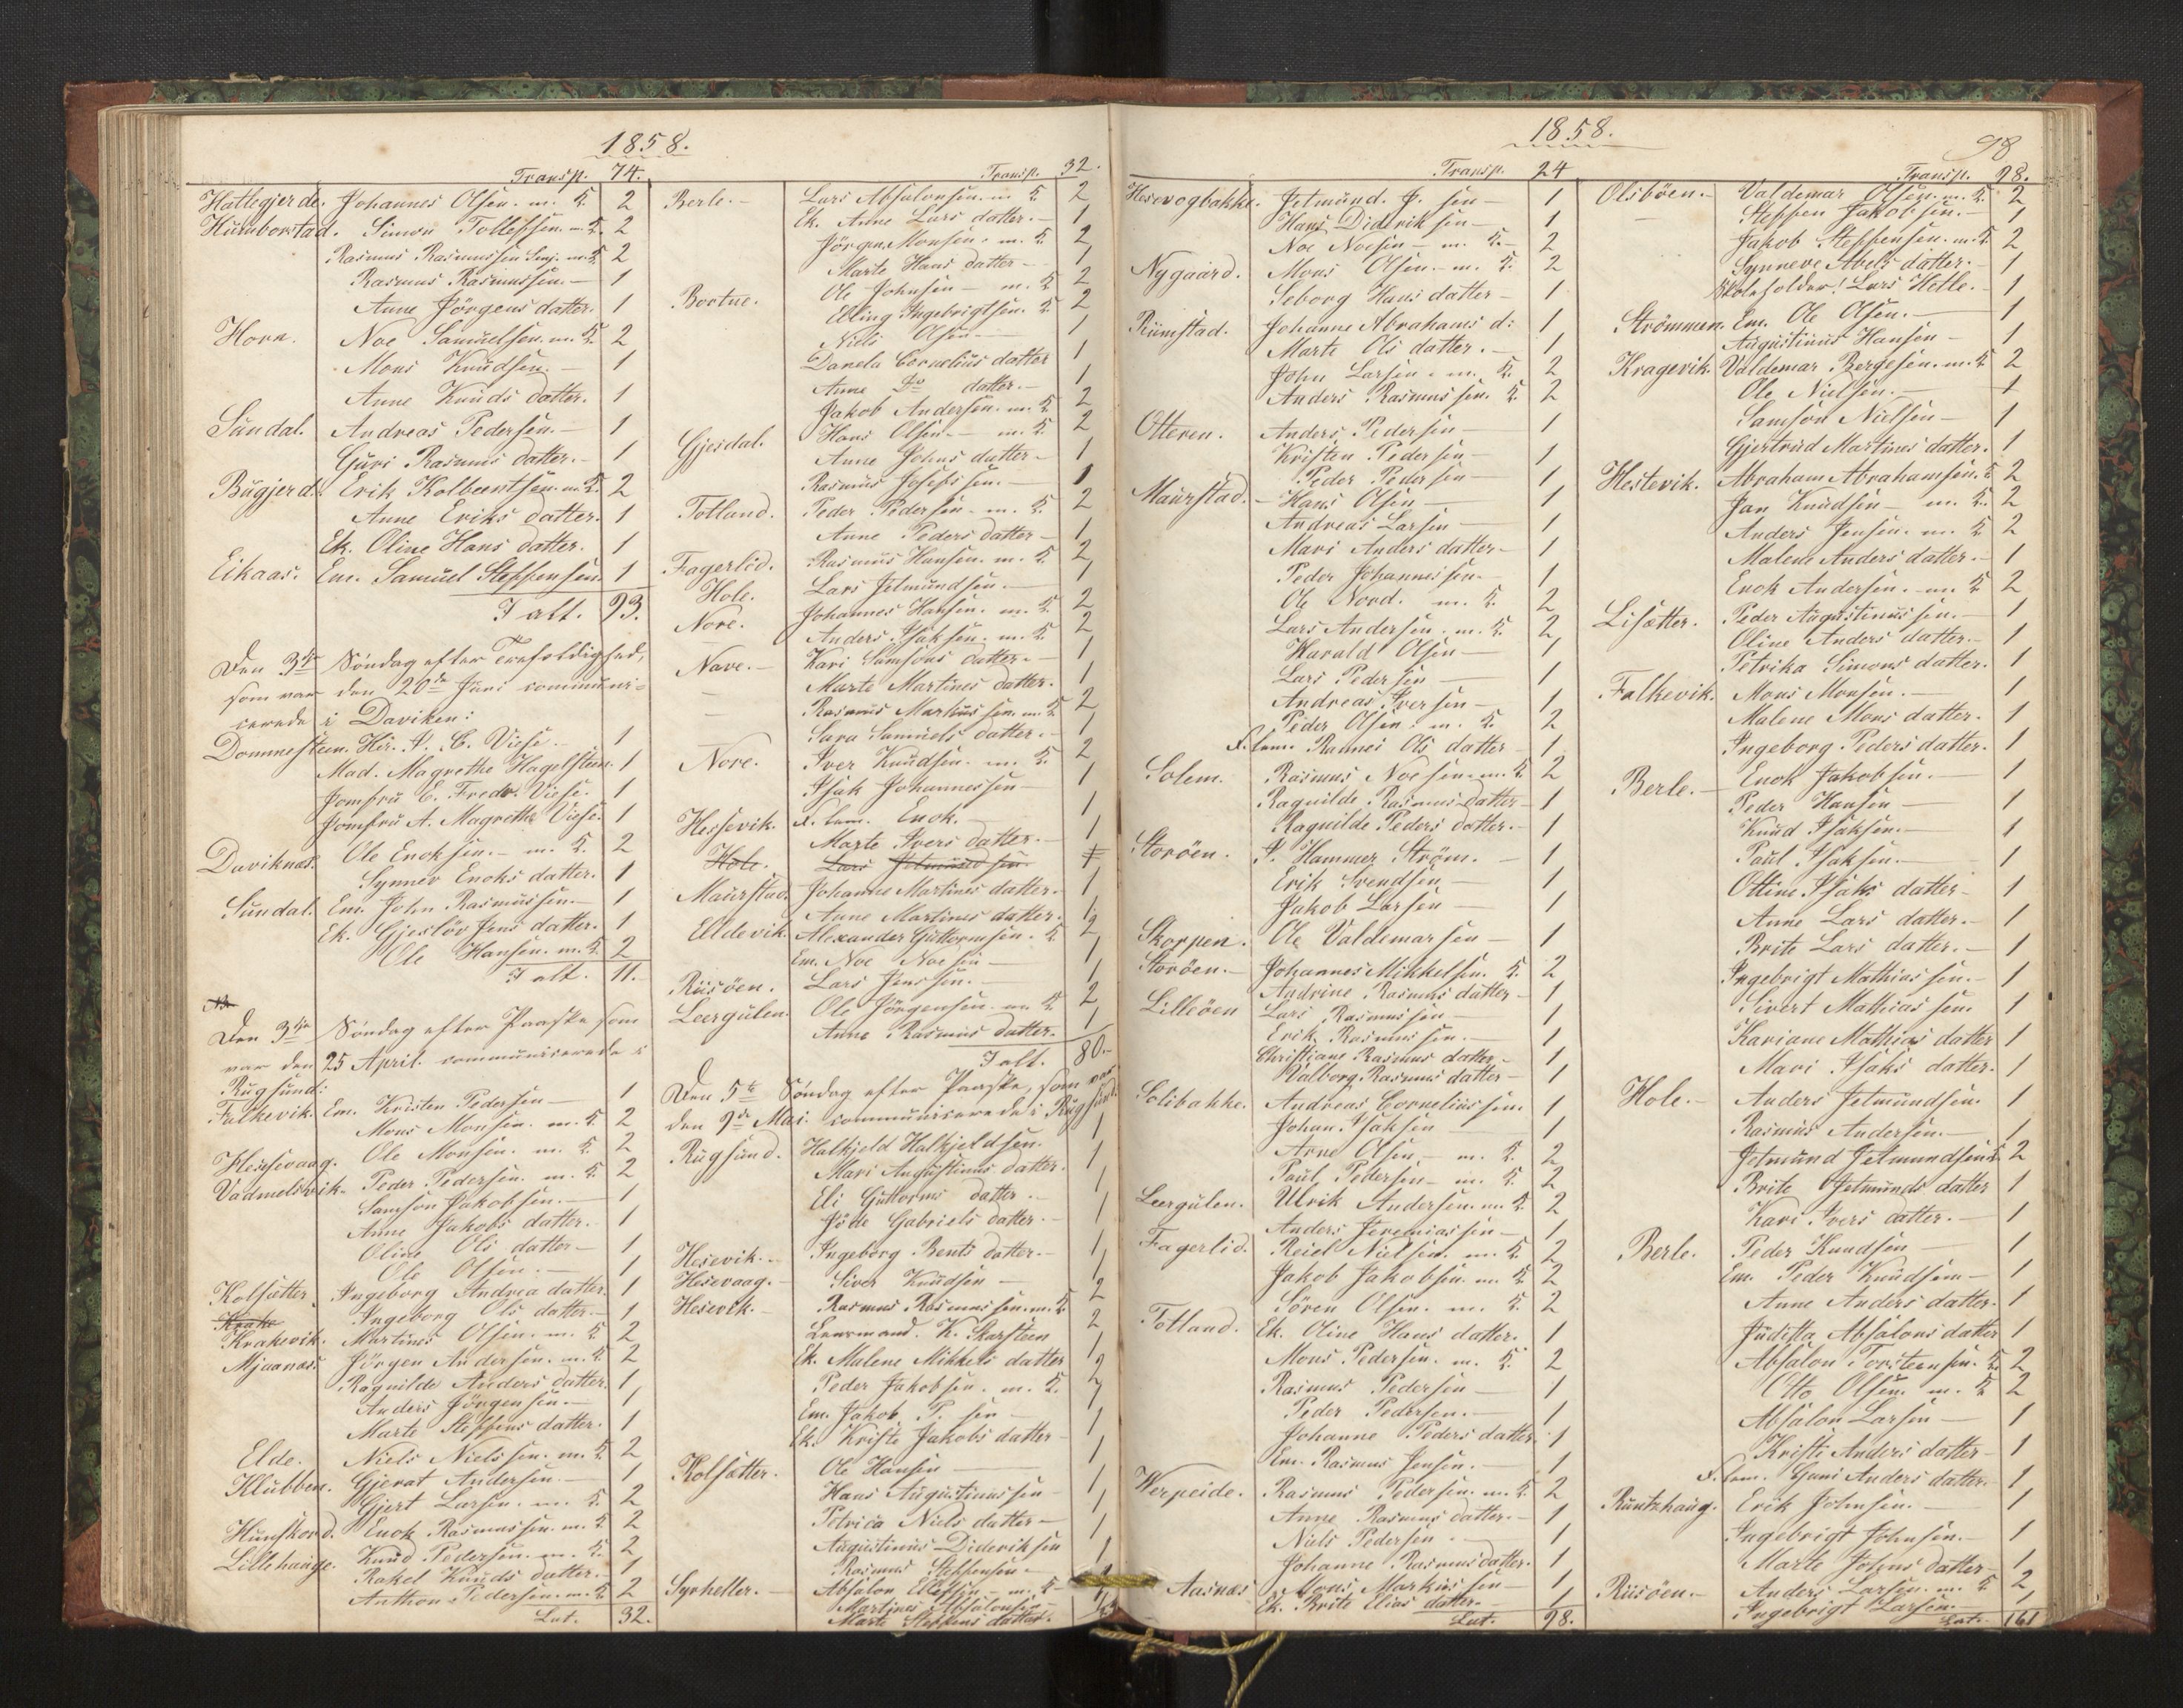 1858.
Transp. 74.
Hattegjerde. Johannes Olsen. m. K. 2
Humborstad. Simon Tollefsen. m. K. 2
Rasmus Rasmussen Senj. m. K. 2
Rasmus Rasmussen. — 1
Anne Jörgens datter. 1
Horn. Noe Samuelsen. m. K. 2
Mons Knudsen. — 1
Anne Knuds datter. 1
Sundal. Andreas Pedersen. — 1
Guri Rasmus datter. — 1
Bugjerd. Erik Kolbeentsen. m. K. 2
Anne Eriks datter. 1
Ek. Oline Hans datter. 1
Eikaas. Em. Samuel Steffensen 1
I alt. 93.
Den 3die Søndag efter Trefoldighed,
som var den 20de Juni communi=
cerede i Daviken:
Dommesteen. Hr. P. C. Viese. — 1
Mad. Magrethe Hagelsteen. 1
Jomfru E. Fredr. Viese. 1
Jomfru A. Magrethe Viese. 1
Daviknæs. Ole Enoksen. — m. K. 2
Synnev Enoks datter. 1
Sundal. Em. John Rasmussen. — 1
Ek. Gjesløv Jens datter. 1
Ole Hansen. m. K. 2
I alt. 11.
Den 3die Søndag efter Paaske som
var den 25 April. communicerede i
Rugsund:
Falkevik. Em. Kristen Pedersen — 1
Mons Monsen. m. K. 2
Hessevaag. Ole Monsen. m. K. 2
Vadmelsvik. Peder Pedersen. m. K. 2
Samson Jakobsen. — 1
Anne Jakobs datter. 1
Oline Ols datter — 1
Ole Olsen. — 1
Kolsætter. Ingeborg Andrea datter. 1
Krake Ingeborg Ols datter. — 1
Krakevik. Martines Olsen. m. K. 2
Mjaanæs. Jörgen Andersen. m. K. 2
Ragnilde Anders datter. 1
Anders Jörgensen. — 1
Marte Steffens datter. 1
Elde. Niels Nielssen. m. K. 2
Klubben. Gjerat Andersen. — 1
Gjert Larsen. m. K. 2
Hunskord. Enok Rasmussen. m. K. 2
Lillehauge. Knud Pedersen. m. K. 2
Rakel Knuds datter. — 1
Anthon Pedersen. m. K. 2
Lat. 32.
Transp. 32.
Berle. — Lars Absalonsen. m K 2
Ek. Anne Lars datter. — 1
Jörgen Monsen. m. K. 2
Marte Hans datter — 1
Ole Johnsen — m. K. 2
Bortne. Elling Ingebrigtsen. K. 2
Niels Olsen — 1
Danela Cornelius datter 1
Anne Do datter. — 1
Jakob Andersen. m. K. 2
Gjesdal. Hans Olsen. — m. K. 2
Anne Johns datter — 1
Rasmus Josefssen. — 1
Totland. Peder Pedersen. m. K. 2
Anne Peders datter — 1
Fagerlid. Rasmus Hansen. m. K. 2
Hole. Lars Jetmundsen. — 1
Nore. Johannes Hansen. m. K. 2
Anders Isaksen. m. K. 2
Nave. — Kari Samsons datter. — 1
Marte Martines datter. 1
— Rasmus Markussen. m. K 2
— Sara Samuels datter. — 1
Nore. Iver Knudsen. m. K. 2
Isak Johannessen — 1
Hessevik. F. lem. Enok. — 1
Marte Ivers datter. — 1
Hole. Lars Jetmundsen. 1
Maurstad. Johanne Martines datter. 1
Anne Martines datter. 1
Eldevik. Alexander Guttormsen. K. 2
Em. Noe Noesen — 1
Riisöen. Lars Jenssen. — 1
Leergulen. Ole Jörgensen. m. K. 2
Anne Rasmus datter. 1
I alt. 80.
Den 5te Søndag efter Paaske, som var
den 9de Mai. communicerede i Rugsund.
Rugsund. Halkjeld Halkjeldsen. 1
Mari Augustinus datter. 1
Eli Guttorms datter. — 1
Jöde Gabriels datter. — 1
Hesevik. — Ingeborg Bents datter. — 1
Hesevaag. — Siver Knudsen — 1
Hesevik. — Rasmus Rasmussen. m. K. 2
Leensmand. K. Skarsteen 2
Ek. Malene Mikkels datter 1
Peder Jakobsen. m. K. 2
Em. Jakob P. sen — 1
Ek. Kriste Jakobs datter — 1
Kolsætter. Ole Hansen — 1
Hans Augustinussen — 1
Petrica Niels datter — 1
Augustinus Dideriksen 1
Rasmus Steffensen — 1
Syrheller. — Absalon Ellefsen — m. K — 2
Martines Absalonsen — 1
Marte Steffens datter.
1858.
98
Transp. 24
Hesevogbakke. Jetmund. J. sen — 1
Hans Dideriksen — 1
Noe Noesen — m. K. — 2
Nygaard. Mons Olsen. — m. K. 2
Seborg Hans datter — 1
Rümstad. Johanne Abrahams d: 1
Marte Ols datter. — 1
John Larsen. m. K. 2
Anders Rasmussen. K. 2
Otteren. Anders Pedersen — 1
Kristen Pedersen — 1
Peder Pedersen — 1
Maurstad. — Hans Olsen — 1
Andreas Larsen — 1
Mari Anders datter — 1
Peder Johannessen. — 1
Ole Nord. m. K. 2
Lars Andersen. m. K. 2
Harald Olsen — 1
Lars Pedersen — 1
Andreas Iversen — 1
Peder Olsen. m. K. 2
F. lem. Rannei Ols datter — 1
Solem. Rasmus Noesen. m. K. 2
Ragnilde Rasmus datter — 1
Ragnilde Peders datter. — 1
Storöen. P. Hammer Ström. — 1
Erik Svendsen — 1
Jakob Larsen — 1
Skorpen. Ole Valdemarsen — 1
Storöen. — Johannes Mikkelsen. K. 2
Andrine Rasmus datter — 1
Lilleöen Lars Rasmussen — 1
Erik Rasmussen. — 1
Christiane Rasmus datter. — 1
Valborg Rasmus datter — 1
Solibakke. Andreas Corneliussen. 1
Johan Isaksen — 1
Arne Olsen — m. K. 2
Paul Pedersen — m. K. 2
Leergulen. Ulrik Andersen. m. K. 2
Anders Jeremiassen — 1
Fagerlid. Reiel Nielsen. m. K. 2
Jakob Jakobsen. m. K. 2
Sören Olsen. m. K. 2
Totland. Ek. Oline Hans datter. 1
Mons Pedersen. m. K. 2
Rasmus Pedersen — 1
Peder Pedersen. — 1
Johanne Peders datter. 1
Em. Rasmus Jensen. — 1
Werpeide. Rasmus Pedersen. m. K. 2
Anne Rasmus datter. — 1
Niels Pedersen. — 1
Johanne Rasmus datter. 1
Aasnæs Mons Markussen — 1
Ek. Brite Elias datter. — 1
Lat. 98.
Transp. 98.
Olsböen. — Valdemar Olsen. m. K. 2
— Steffen Jakobsen. — 1
Jakob Steffensen. m. K. 2
Synneve Abels datter. — 1
Skoleholder! Lars Helle. — 1
Strömmen. Em. Ole Olsen. — 1
Augustinus Hansen — 1
Kragevik. Valdemar Bergesen. m. K 2
Ole Nielsen. — 1
Samson Nielsen — 1
Gjertrud Martines datter. 1
Hestevik. Abraham Abrahamsen. K 2
Jan Knudsen — m. K. 2
Anders Jensen. m. K 2
Malene Anders datter. — 1
Enok Andersen. m. K 2
Lisætter. Peder Augustinussen. — 1
Oline Anders datter. — 1
Petrika Simons datter. 1
Falkevik. Mons Monsen. — 1
Malene Mons datter. 1
Ingeborg Peders datter. 1
Berle. — Enok Jakobsen. — 1
Peder Hansen — 1
Knud Isaksen. — 1
Paul Isaksen. — 1
Ottine Isaks datter — 1
Anne Lars datter. — 1
Brite Lars datter. — 1
Ingebrigt Mathiassen. — 1
Sivert Mathiassen. 1
Kariane Mathias datter 1
Mari Isaks datter. 1
Hole. — Anders Jetmundsen. 1
Rasmus Andersen. — 1
Jetmund Jetmundsen K 2
Brite Jetmunds datter 1
Kari Ivers datter. — 1
Berle. Peder Knudsen — 1
Em. Peder Knudsen — 1
Anne Anders datter. 1
Juditta Absalons datter 1
Absalon Torsteensen. K. 2
Otto Olsen. m. K 2
Absalon Larsen — 1
Kristi Anders datter — 1
F. lem. Guni Anders datter. 1
Runtzhaug. Erik Johnsen. — 1
Ingebrigt Johnsen. — 1
Marte Johns datter — 1
Riisöen. — Anders Larsen. m. K 2
Ingebrigt Larsen. — 1
Lat. 161